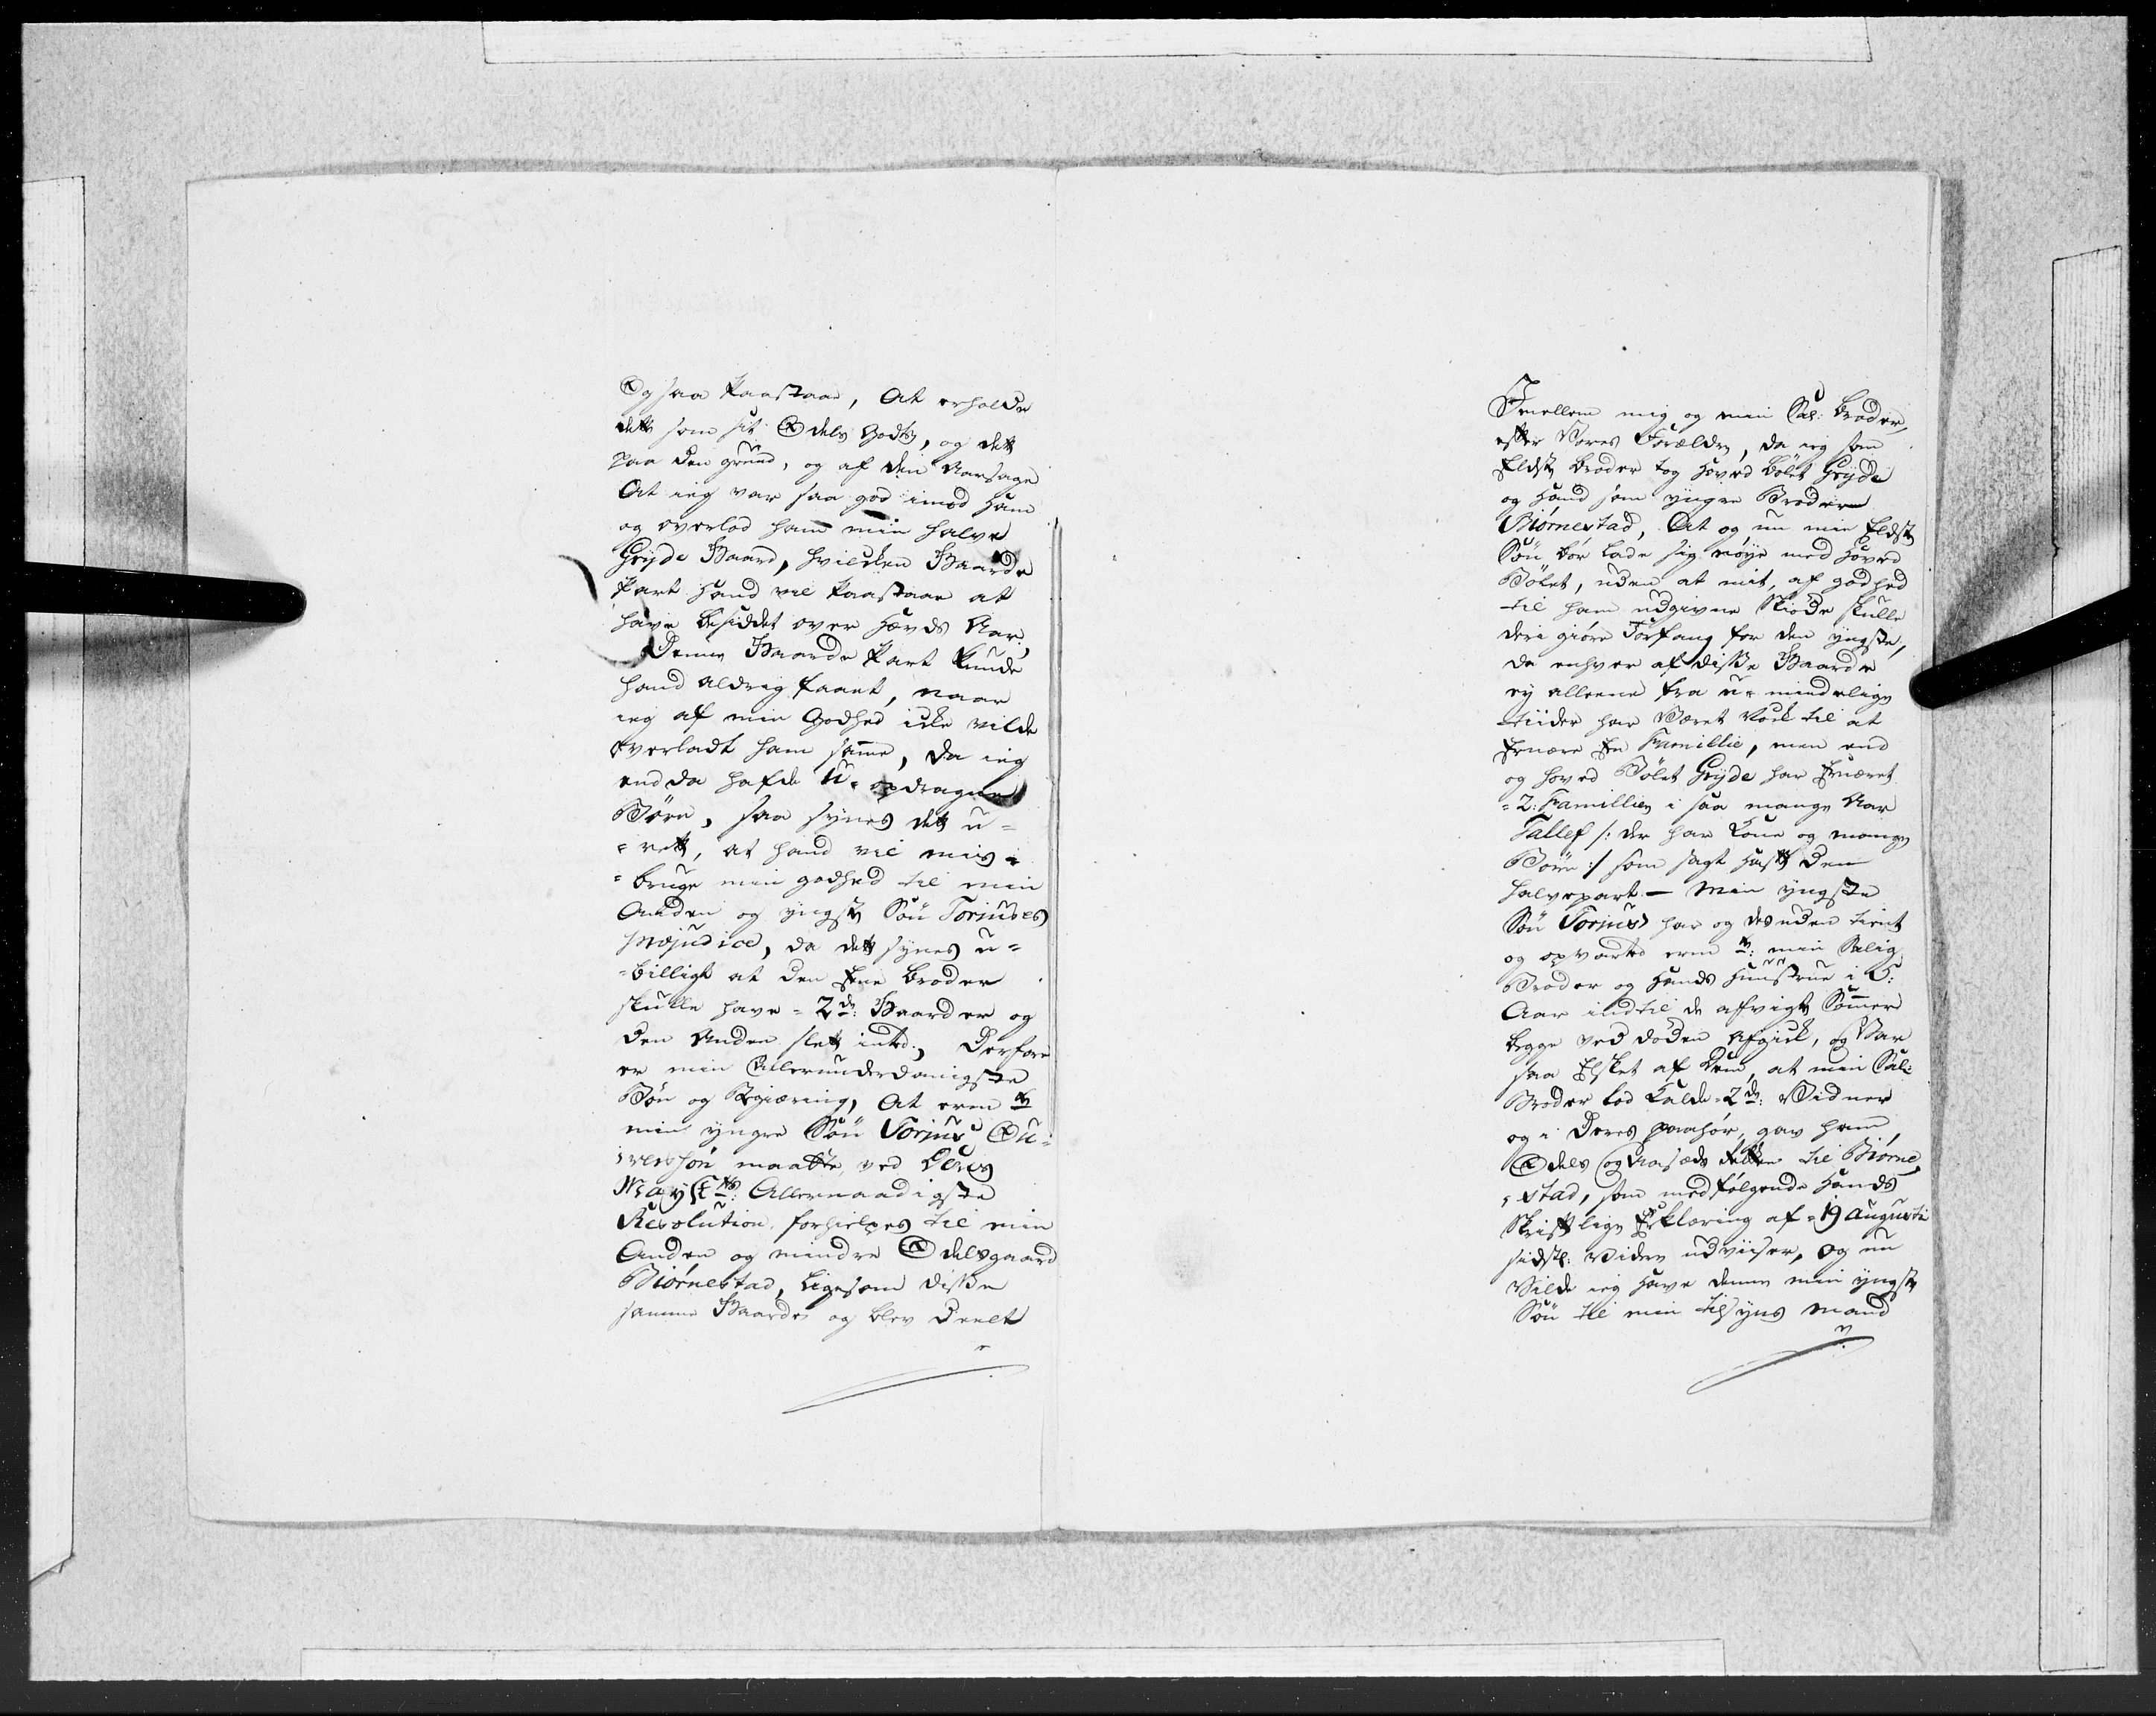 Ogsaa paastaae, At erholde
dett som sit Odels Gods, og dett
paa den grund, og af den Aarsage
At ieg var saa god imod ham
og overlod ham min halve
Gryde Gaard, hvilcken Gaarde
Part hand vil paastaae at
have besiddet over Hævds Aar,
Denne Gaarde Part kunde
hand aldrig faaet, naar
ieg af min Godhed icke vilde
overladt ham samme, da ieg
endda hafde U-opdragne
Børn, saa synes dett u-
rett, at hand vil mis-
bruge min godhed til min
Anden og yngste Søn Torjuses
præjudice, da dett synes u-
billigt at den Ene broder
skulle have 2de: Gaarder og
den Anden slett intet; Derfore
er min Allerunderdanigste
Bøn og Begiæring, At erm:te
min yngre Søn Torjus Ou-
versøn maatte ved Deres
Mayts: Allernaadigste
Resolution forhielpes til min
Anden og mindre Odelsgaard
Biørnestad, Ligesom disse
samme Gaarde og blev Deelt
Imellem mig og min Sal: Broder,
efter Vores Forældre, da ieg som
Eldste Broder tog Hoved Bølet Gryde
og Hand som yngre Broderen
Biørnestad, At og nu min Eldste
Søn bør lade sig nøye med Hoved
Bølet, uden at mit, af godhed
til ham udgivne Skiøde skulle
deri giøre Forfang for den yngste,
da enhver af disse Gaarde
ey alleene fra u-mindelige
tiider har Været Nock til at
Ernære En Famillie, men end
og Hoved Bølet Gryde har Ernæret
2: Famillier i saa mange Aar
Tallef /: der har Kone og mange
Børn :/ som sagt hafte den
halvepart. — Min yngste
Søn Torjus har og desuden tient
og opvartet erm:te min Salig
Broder og Hands Hustrue i 5:
Aar indtil de afvigte Sommer
begge ved døden Afgick, og Var
saa Elsket af Dem, at min Sal:
Broder lod Kalde 2de: Vidner
og i Deres paahør, gav ham,
Odels og Aasæds Retten til Biørne-
stad, som medfølgende Hands
Skriftlige Erklæring af 19 Augusti
sidstl: Videre udviiser, og nu
Vilde ieg have denne min yngste
Søn til min tilsyns Mand